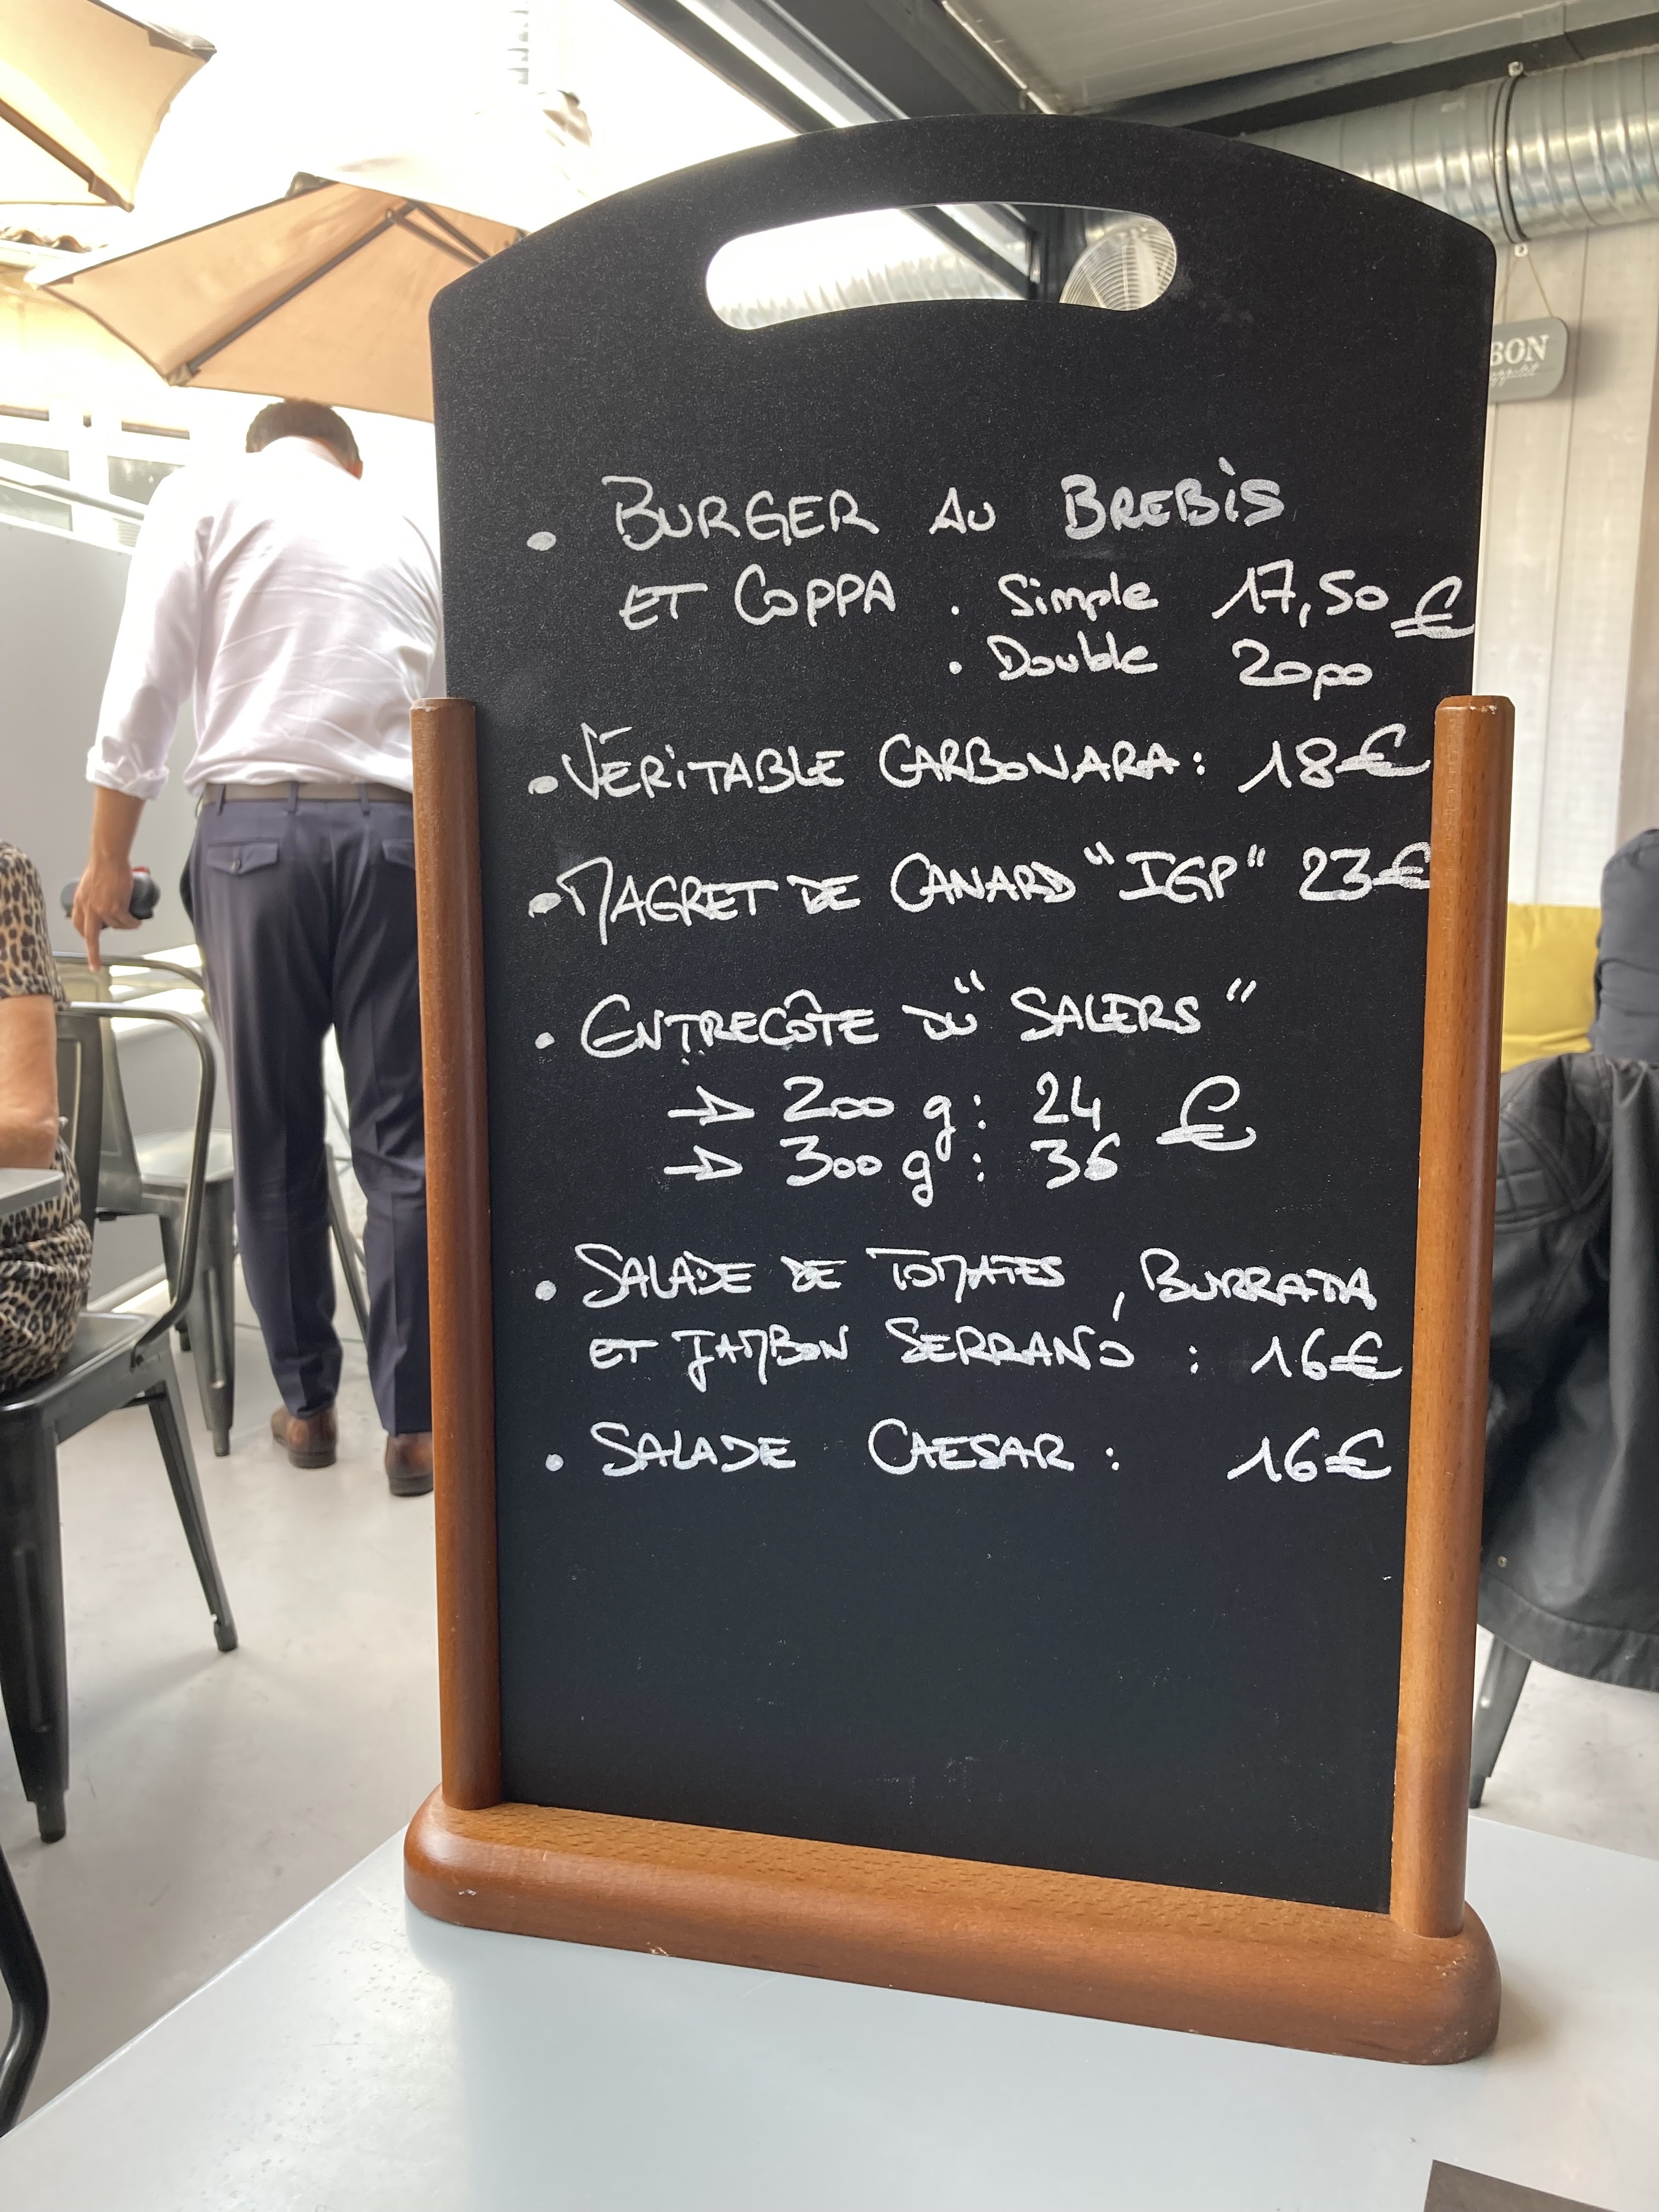 BON
appétit
• BURGER AU BREBIS
ET COPPA . Simple 17,50 €
. Double 20,00
• VÉRITABLE CARBONARA : 18€
• MAGRET DE CANARD "IGP" 23€
• ENTRECÔTE DU "SALERS"
→ 200 g : 24 €
→ 300 g : 36
• SALADE DE TOMATES, BURRATA
ET JAMBON SERRANO : 16€
• SALADE CAESAR : 16€